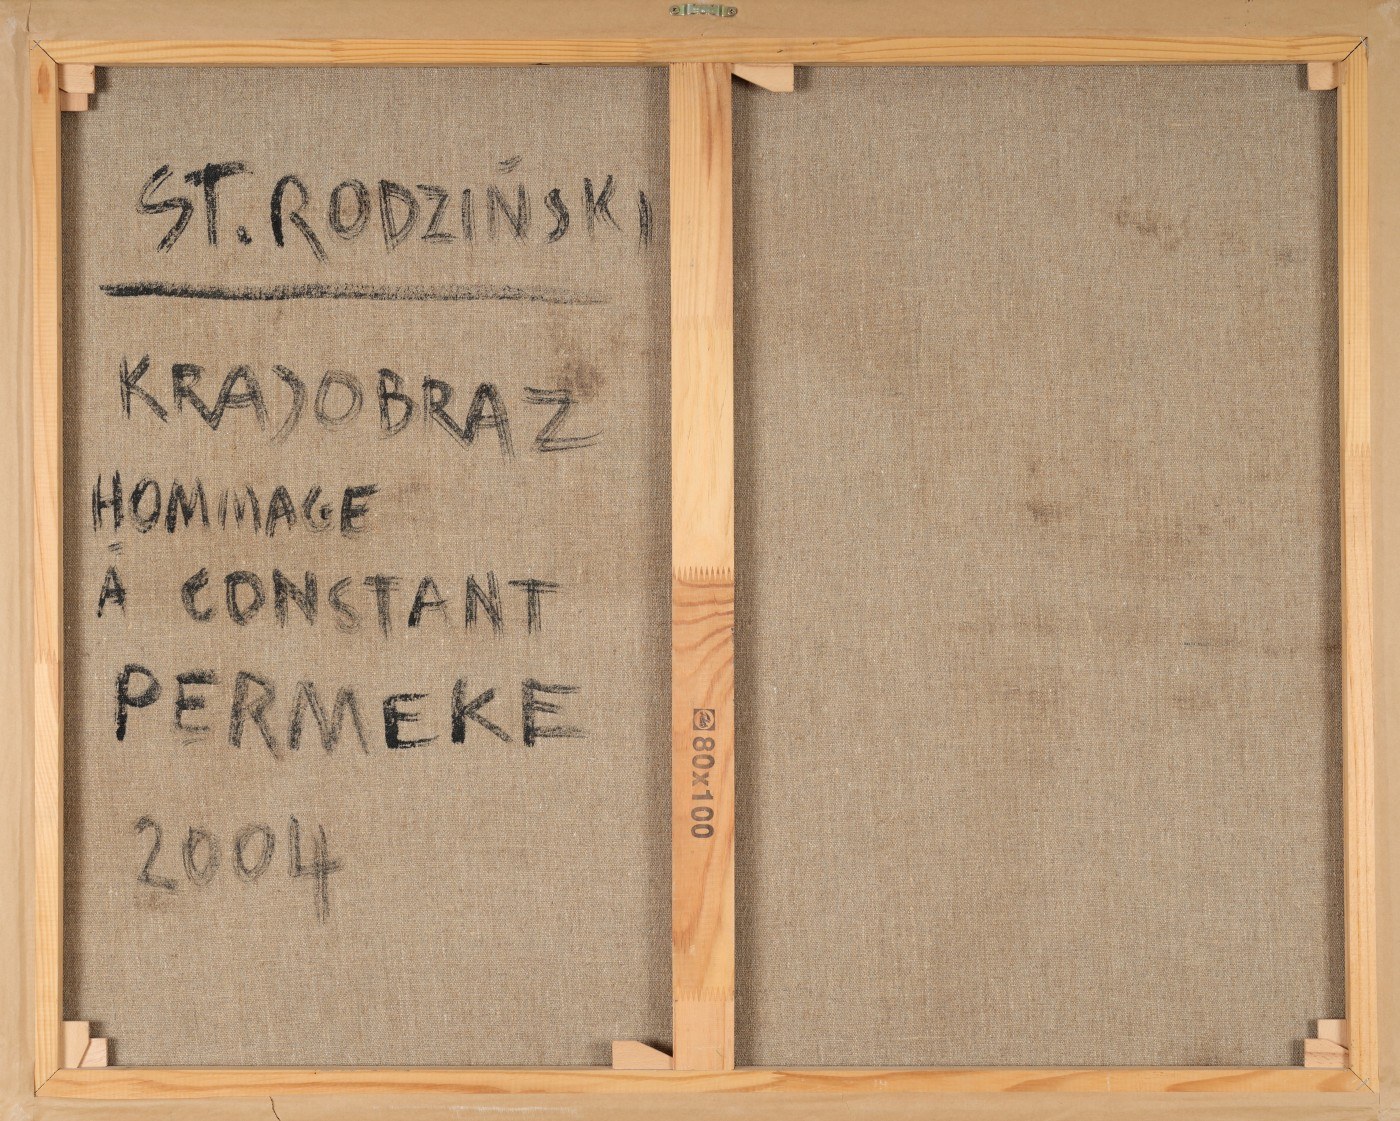 ST. RODZIŃSKI
KRAJOBRAZ
HOMMAGE
À CONSTANT
PERMEKE
2004
80x100